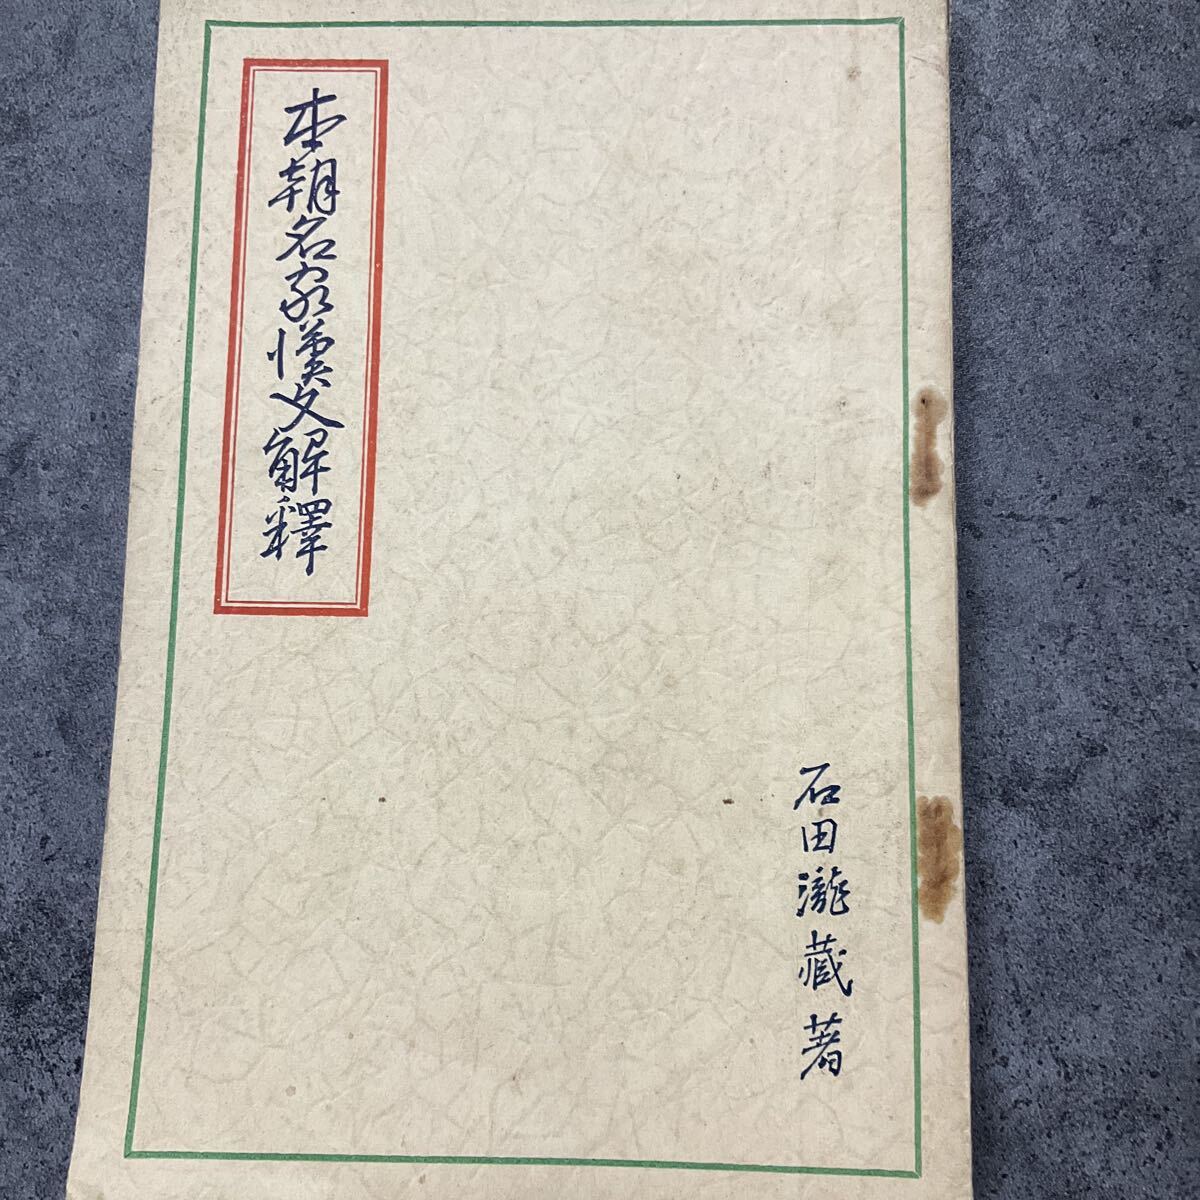 本朝名家漢文解釋
石田瀧藏著